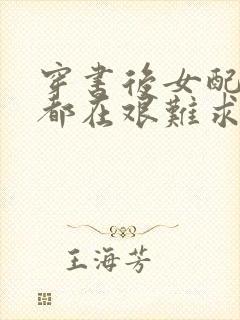 穿書後女配
都在艰難求
王海芳